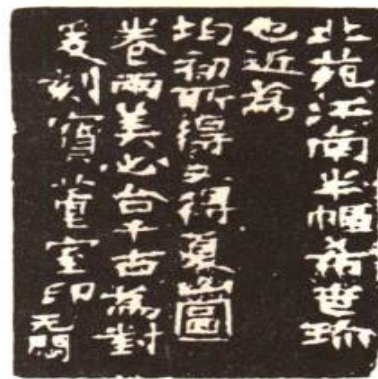 北苑江南半幅希世珎
也近為
均初所得又得夏山圖
卷兩美必合千古為對
爰刻寶董室印无悶